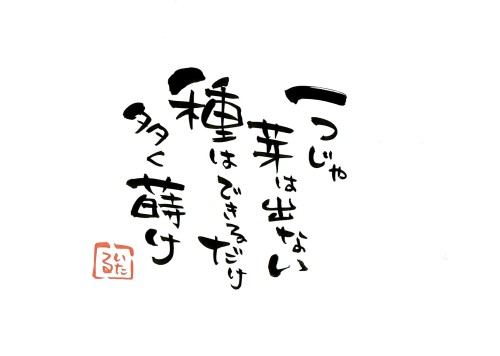 一つじゃ
芽は出ない
種はできるだけ
多く蒔け
いたる